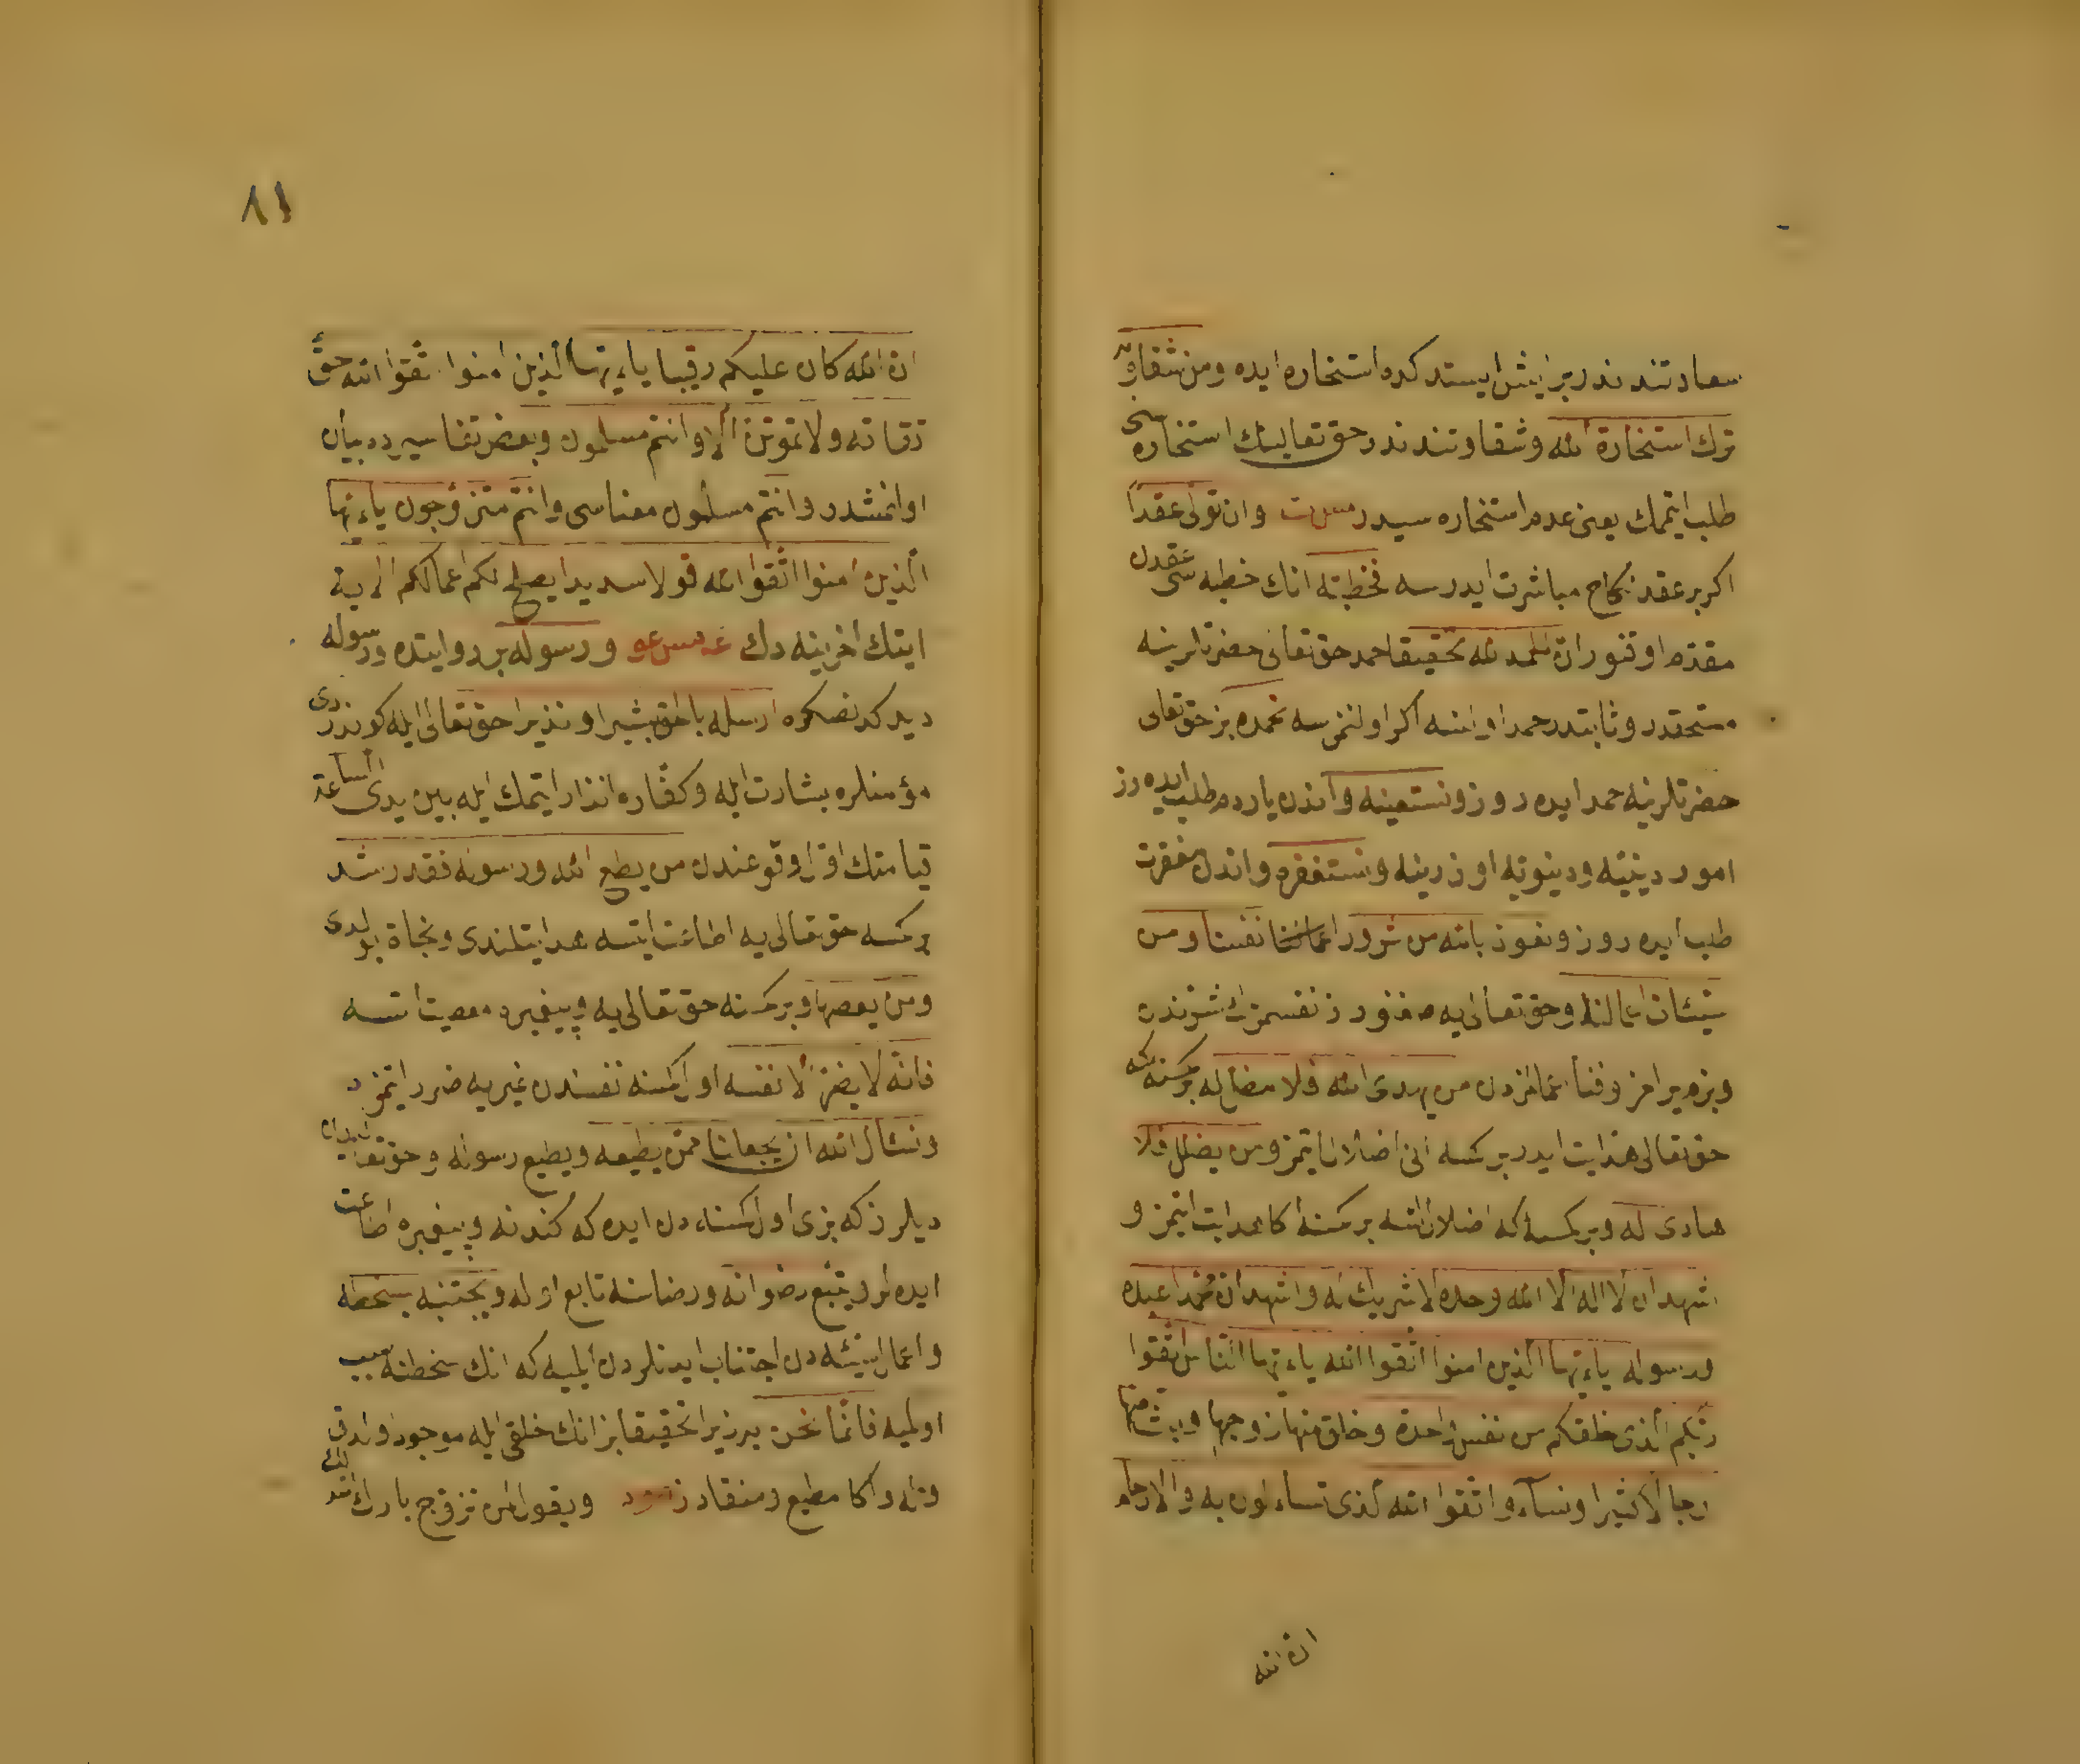 سعادتندندر بر ايش ايستدكده استخاره ايده ومن شقاوته
ترك استخارة الله وشقاوتندندر حق تعالينك استخاره سنى
طلب ايتممك يعنى عدم استخاره سيدر وان تولى عقدا
اكر بر عقد نكاح مباشرت ايدرسه فخطبته انك خطبه سى عقددن
مقدم اوقنور ان الحمد لله تحقيقا حمد حق تعالى حضرتلرينه
مستحقدر وثابتدر حمد اولنسه اكر اولنمزسه نحمده بز حق تعالى
حضرتلرينه حمد ايده روز ونستعينه واندن ياردم طلب ايده رز
امور دينيه ودنيويه اوزرينه ونستغفره واندن مغفرت
طلب ايده روز ونعوذ بالله من شرور انفسنا ومن
سيئات اعمالنا وحق تعالى يه صغنورز نفسمزك شرندن
وبزم يرامز وفنا عملمزدن من يهدى الله فلا مضل له بر كمسنه كه
حق تعالى هدايت ايدر بر كمسه انى اضلال ايتمز ومن يضلل فلا
هادى له وبر كمسه كه اضلال ايتسه بر كمسنه اكا هدايت ايتمز و
اشهد ان لا اله الا الله وحده لا شريك له واشهد ان محمدا عبده
ورسوله ياءيها الذين امنوا اتقوا الله ياءيها الناس اتقوا
ربكم الذى خلقكم من نفس واحدة وخلق منها زوجها وبث منهما
رجالا كثيرا ونساء واتقوا الله الذى تساءلون به والارحام
ان الله
٨١
ان الله كان عليكم رقيبا ياءيها الذين امنوا اتقوا الله حق
تقاته ولا تموتن الا وانتم مسلمون وبعض تفاسيرده بيان
اولنمشدر وانتم مسلمون معناسى وانتم متزوجون ياءيها
الذين امنوا اتقوا الله قولا سديدا يصلح لكم اعمالكم الاية
ايتك اخرينه دك ورسوله بر روايتده ورسوله
ديدكدنصكره ارسله بالحق بشيرا ونذيرا حق تعالى ايله كوندردى
مؤمنلره بشارت ايله وكفاره انذار ايتمك ايله بين يدى الساعة
قيامتك اول وقوعندن من يطع الله ورسوله فقد رشد
بر كمسه حق تعالى يه اطاعت ايتسه هدايتلندى ونجاة بولدى
ومن يعصهما وبر كمسنه حق تعالى يه وپيغمبره معصيت ايتسه
فانه لا يضر الا نفسه اول كمسنه نفسندن غيريه ضرر ايتمز
ونسأل الله ان يجعلنا ممن يطيعه ويطيع رسوله وحق تعالى
ديلرز كه بزى اول كمسنه دن ايده كه كندنه وپيغمبره اطاعت
ايده لر ويتبع رضوانه ورضاسنه تابع اوله ويجتنبه بسخطه
واعمال سيئه دن اجتناب ايدنلردن ايليه كه انك سخطنه سبب
اولميه فانما نحن به زيرا تحقيقا بز انك خلقى ايله موجود اولدق
وله واكا مطيع ومنقادز ويقول لمن تزوج بارك الله